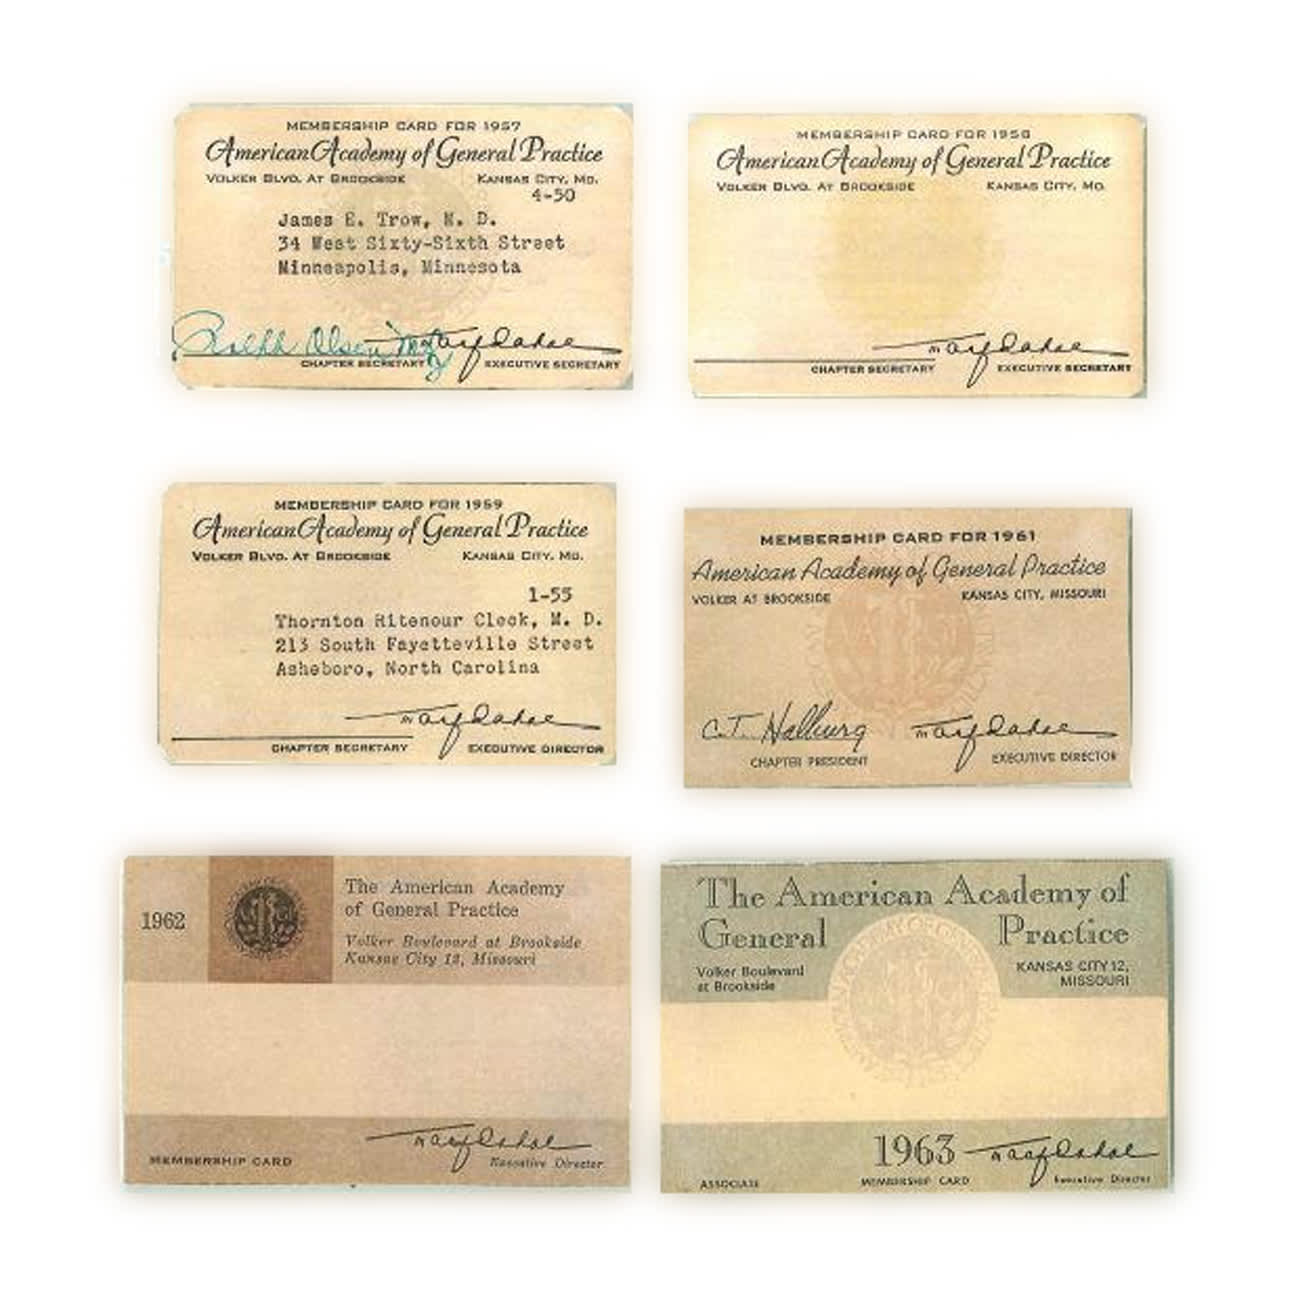 MEMBERSHIP CARD FOR 1957
American Academy of General Practice
VOLKER BLVD. AT BROOKSIDE KANSAS CITY, MO.
4-50
James E. Trow, M. D.
34 West Sixty-Sixth Street
Minneapolis, Minnesota
Ralph Olsen MD Mac F. Cahal
CHAPTER SECRETARY EXECUTIVE SECRETARY
MEMBERSHIP CARD FOR 1958
American Academy of General Practice
VOLKER BLVD. AT BROOKSIDE KANSAS CITY, MO.
Mac F. Cahal
CHAPTER SECRETARY EXECUTIVE SECRETARY
MEMBERSHIP CARD FOR 1959
American Academy of General Practice
VOLKER BLVD. AT BROOKSIDE KANSAS CITY, MO.
1-55
Thornton Ritenour Cleek, M. D.
213 South Fayetteville Street
Asheboro, North Carolina
Mac F. Cahal
CHAPTER SECRETARY EXECUTIVE DIRECTOR
MEMBERSHIP CARD FOR 1961
American Academy of General Practice
VOLKER AT BROOKSIDE KANSAS CITY, MISSOURI
C.T. Mac F. Cahal
CHAPTER PRESIDENT EXECUTIVE DIRECTOR
1962
The American Academy
of General Practice
Volker Boulevard at Brookside
Kansas City 12, Missouri
Mac F. Cahal
MEMBERSHIP CARD Executive Director
The American Academy of
General Practice
Volker Boulevard KANSAS CITY 12,
at Brookside MISSOURI
1963 Mac F. Cahal
ASSOCIATE MEMBERSHIP CARD Executive Director